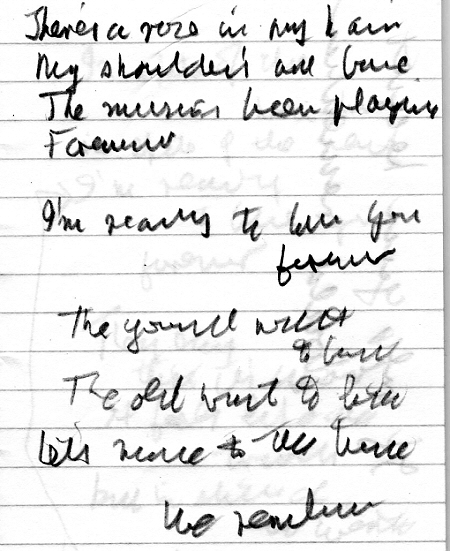 There's a rose in my hair
My shoulders are bare
The music's been playing
Forever
I'm ready to love you
forever
The young want
to
The old want to
Let's move to the
We